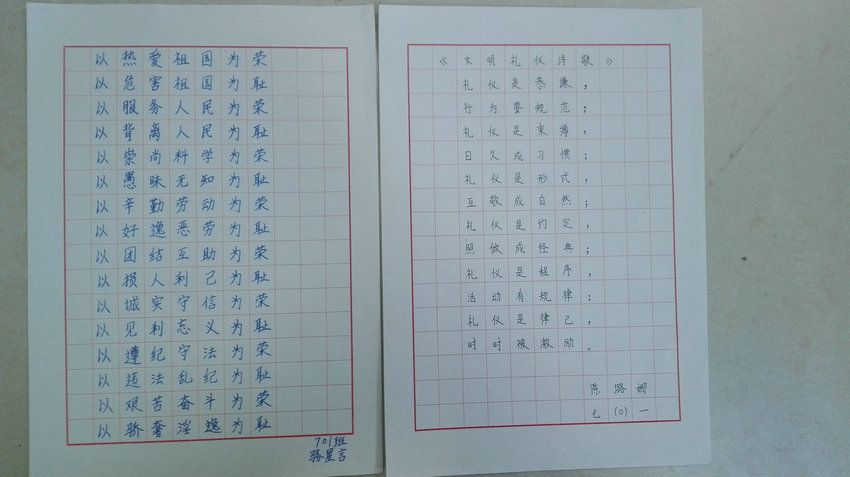 以热爱祖国为荣
以危害祖国为耻
以服务人民为荣
以背离人民为耻
以崇尚科学为荣
以愚昧无知为耻
以辛勤劳动为荣
以好逸恶劳为耻
以团结互助为荣
以损人利己为耻
以诚实守信为荣
以见利忘义为耻
以遵纪守法为荣
以违法乱纪为耻
以艰苦奋斗为荣
以骄奢淫逸为耻
701班
骆星言
《文明礼仪诗歌》
礼仪是恭谦，
行为要规范；
礼仪是束缚，
日久成习惯；
礼仪是形式，
互敬成自然；
礼仪是约定，
照做成经典；
礼仪是程序，
活动有规律；
礼仪是律己，
时时被激励。
陈璐
七（0）一